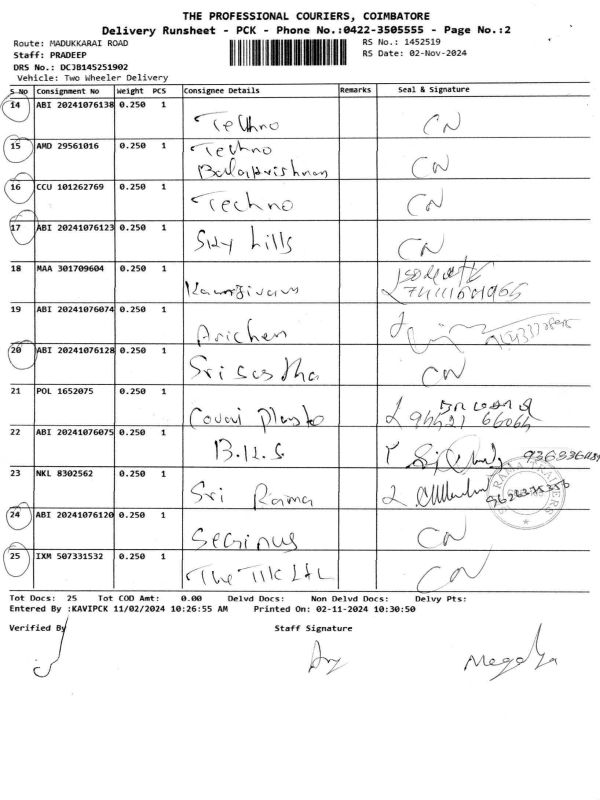 THE PROFESSIONAL COURIERS, COIMBATORE
Delivery Runsheet - PCK - Phone No.:0422-3505555 - Page No.:2
Route: MADUKKARAI ROAD RS No.: 1452519
Staff: PRADEEP RS Date: 02-Nov-2024
DRS No.: DCJB145251902
Vehicle: Two Wheeler Delivery
S No Consignment No Weight PCS Consignee Details Remarks Seal & Signature
14 ABI 20241076138 0.250 1
Techno CN
15 AMD 29561016 0.250 1 Techno
Balakrishnan CN
16 CCU 101262769 0.250 1
Techno CN
17 ABI 20241076123 0.250 1
Sky hills CN
18 MAA 301709604 0.250 1
19 ABI 20241076074 0.250 1
Arichem
20 ABI 20241076128 0.250 1
Sri Sastha CN
21 POL 1652075 0.250 1
Covai Plasto
22 ABI 20241076075 0.250 1 B.K.S
23 NKL 8302562 0.250 1
Sri Rama
24 ABI 20241076120 0.250 1
CN
25 IXM 507331532 0.250 1
CN
Tot Docs: 25 Tot COD Amt: 0.00 Delvd Docs: Non Delvd Docs: Delvy Pts:
Entered By :KAVIPCK 11/02/2024 10:26:55 AM Printed On: 02-11-2024 10:30:50
Verified By Staff Signature